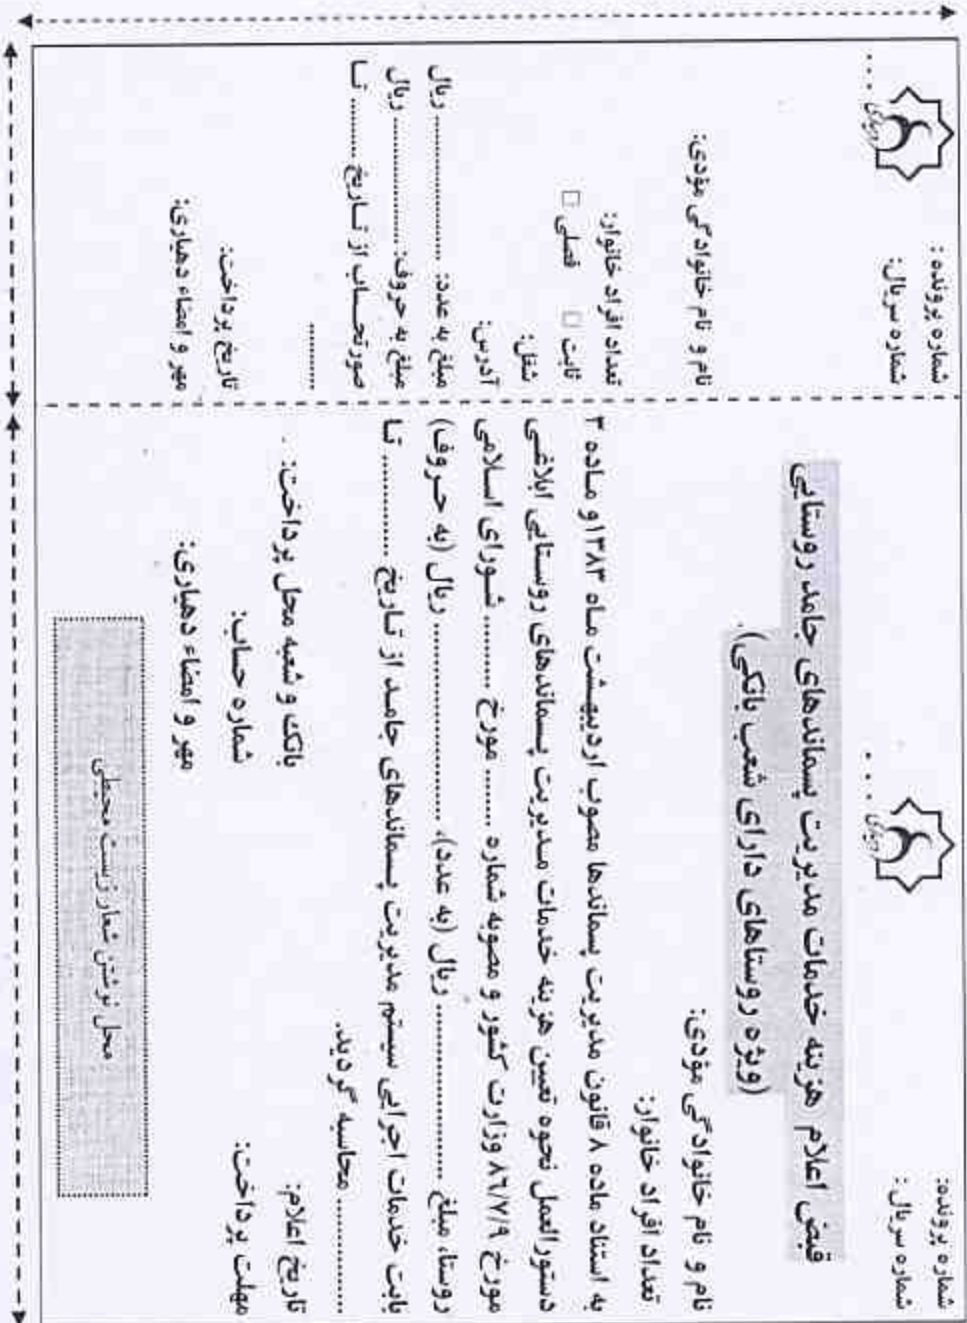 شماره پرونده:
شماره سریال:
دهیاری ...
قبض اعلام هزینه خدمات مدیریت پسماندهای جامد روستایی
(ویژه روستاهای دارای شعب بانکی).
نام و نام خانوادگی مؤدی:
تعداد افراد خانوار:
به استناد ماده ۸ قانون مدیریت پسماندها مصوب اردیبهشت ماه ۱۳۸۳و ماده ۳
دستورالعمل نحوه تعیین هزینه خدمات مدیریت پسماندهای روستایی ابلاغی
مورخ ۸۶/۷/۹ وزارت کشور و مصوبه شماره ....... مورخ ....... شورای اسلامی
روستا، مبلغ ............... ریال (به عدد)، ............................... ریال (به حروف)
بابت خدمات اجرایی سیستم مدیریت پسماندهای جامد از تاریخ .......... تا
............ محاسبه گردید.
تاریخ اعلام:
بانک و شعبه محل پرداخت:
مهلت پرداخت:
شماره حساب:
مهر و امضاء دهیاری:
محل نوشتن شعار زیست محیطی
شماره پرونده :
شماره سریال:
دهیاری ...
نام و نام خانوادگی مؤدی:
تعداد افراد خانوار:
ثابت □ فصلی □
شغل:
آدرس:
مبلغ به عدد: ....................... ریال
مبلغ به حروف: .................... ریال
صورتحساب از تاریخ ......... تا
..........
تاریخ پرداخت:
مهر و امضاء دهیاری: